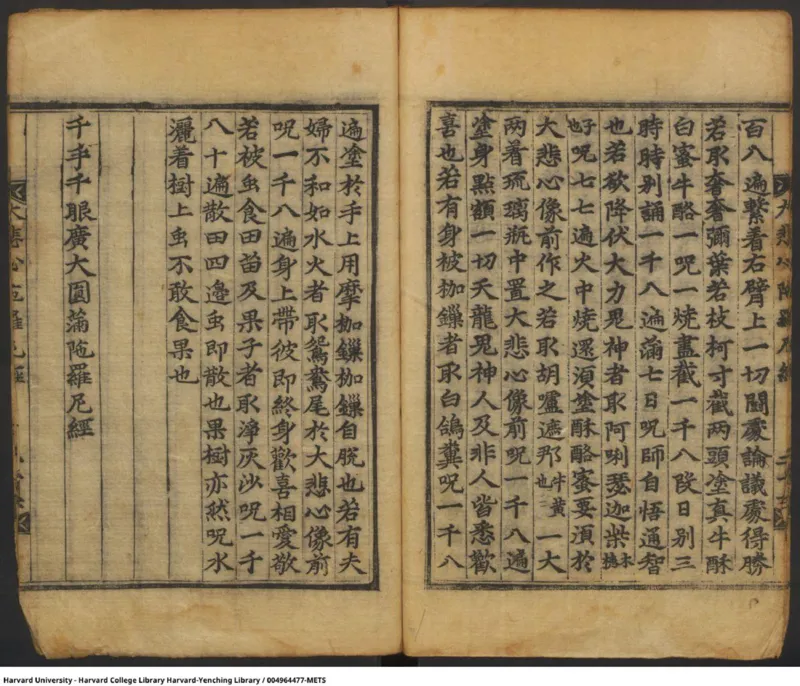 百八遍繫着右臂上一切鬪處論議處得勝
若取奢奢彌葉若枝柯寸截两頭塗真牛酥
白蜜牛酪一呪一燒盡截一千八段日別三
時時別誦一千八遍滿七日呪師自悟通智
也若欲降伏大力鬼神者取阿唎瑟迦柴木槵
子也呪七七遍火中燒還須塗酥酪蜜要須於
大悲心像前作之若取胡嚧遮那牛黃也一大
两着琉璃瓶中置大悲心像前呪一千八遍
塗身點額一切天龍鬼神人及非人皆悉歡
喜也若有身被枷鏁者取白鴿糞呪一千八
遍塗於手上用摩枷鏁枷鏁自脫也若有夫
婦不和如水火者取鴛鴦尾於大悲心像前
呪一千八遍身上帶彼即終身歡喜相愛敬
若被虫食田苗及果子者取淨灰沙呪一千
八十遍散田四邊虫即散也果樹亦然呪水
灑着樹上虫不敢食果也
千手千眼廣大圓滿陁羅尼經
Harvard University - Harvard College Library Harvard-Yenching Library / 004964477-METS